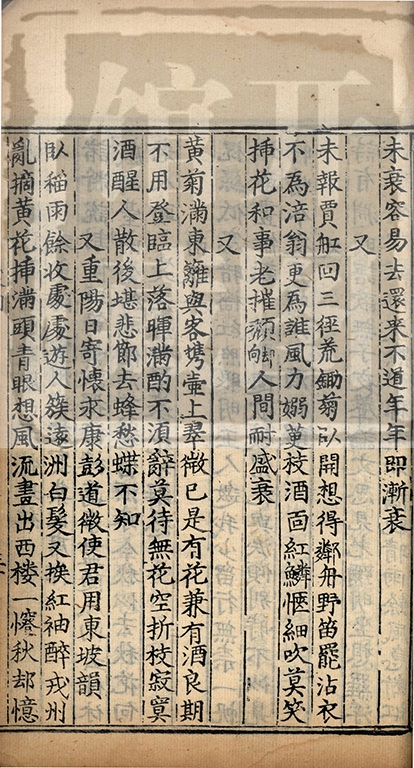 未衰容易去還来不道年年即漸衰
又
未報賈舡回三徑荒鋤菊卧開想得鄰舟野笛罷沾衣
不為涪翁更為誰風力嫋萸枝酒面紅鱗愜細吹莫笑
揷花和事老摧頹却向人間耐盛衰
又
黄菊滿東籬與客携壺上翠微已是有花兼有酒良期
不用登臨上落暉滿酌不湏辭莫待無花空折枝寂寞
酒醒人散後堪悲節去蜂愁蝶不知
又重陽日寄懷永康彭道微使君用東坡韻
臥稲雨餘收處處遊人簇遠洲白髮又挨紅袖醉戎州
亂摘黄花揷滿頭青眼想風流畫出西楼一㡧秋却憶